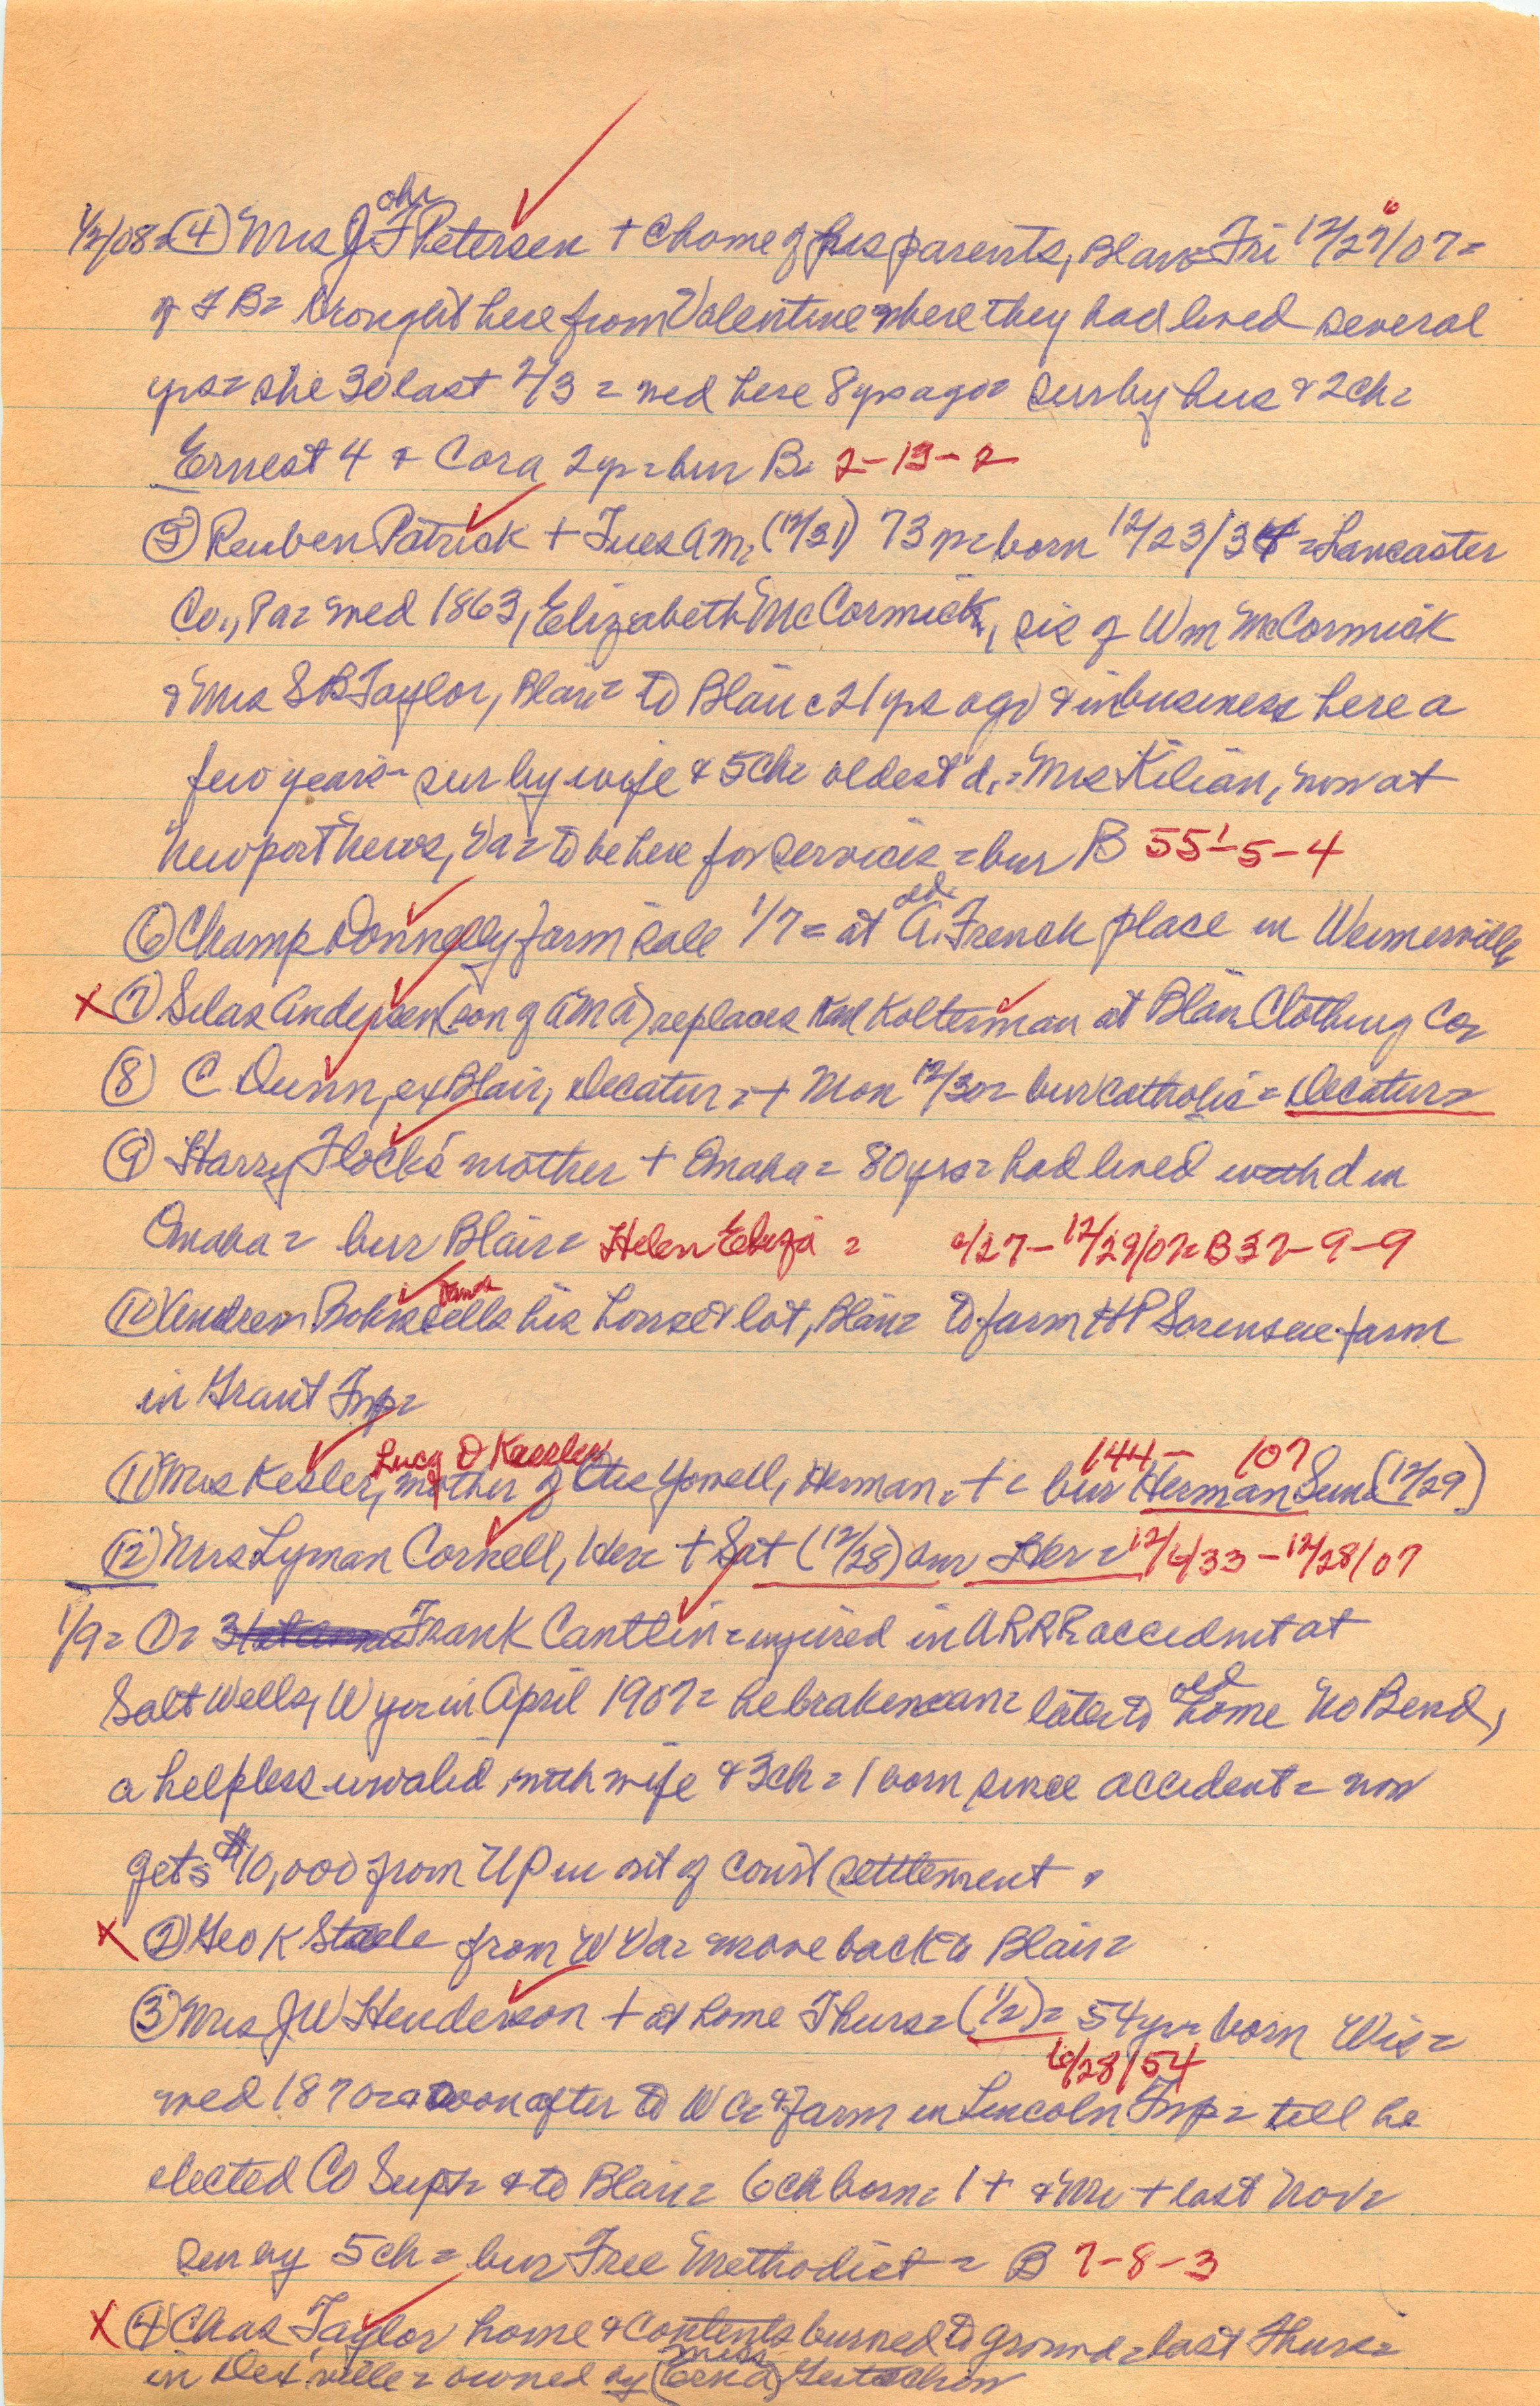 1/2/08= (4) Mrs John F Petersen + @ home of his parents, Blair Fri 12/27/07=
of TB= brought here from Valentine where they had lived several
yrs= she 30 last 2/3 = wed here 8 yrs ago= sur by hus & 2 ch=
Ernest 4 & Cora 2 yr= bur B. 2-13-2
(5) Reuben Patrick + Tues am, (12/31) 73 yr= born 12/23/34 = Lancaster
Co., Pa= wed 1863, Elizabeth McCormick, sis of Wm McCormick
& Mrs S B Taylor, Blair= to Blair c 21 yrs ago & in business here a
few years= sur by wife & 5 ch= oldest d. = Mrs Kilian, now at
Newport News, Va= to be here for services = bur B 55-5-4
(6) Champ Donnelly farm sale 1/7 = at old A. French place in
(7) Silas Andersen (son of A M A) replaces Karl Kolterman at Blair Clothing Co=
(8) C. Dunn, ex Blair, Decatur = + Mon 12/30= bur Catholic = Decatur=
(9) Harry Flock's mother + Omaha = 80 yrs= had lived with d in
Omaha = bur Blair= Helen Eliza = /27-12/29/07= B 32-9-9
(10) Andrew sells his house & lot, Blair= to farm H P Sorensen farm
in Grant Twp=
Lucy D Kessler 144- 107
(11) Mrs Kesler, mother of Otis Yowell, Herman, + = bur Herman Sun (12/29)
(12) Mrs Lyman Cornell, Her= + Sat (12/28) bur Her = 12/6/33-12/28/07
1/9= (1)= Frank Cantlin= injured in A RRR accident at
Salt Wells, Wyo= in April 1907= he brakeman= later to old home No Bend,
a helpless invalid, with wife & 3 ch = 1 born since accident = now
gets $10,000 from UP in out of court settlement.
X (2) Geo K Steele from W Va= move back to Blair=
(3) Mrs J W Henderson + at home Thurs= (1/2)= 54 yr= born Wis=
/28/54
wed 1870= & soon after to W C= & farm in Lincoln Twp= till he
elected Co Supt= & to Blair= 6 ch born= 1 + & Mr + last Nov=
sur by 5 ch = bur Free Methodist = B 7-8-3
X (4) Chas Taylor home & contents burned to ground= last Thurs=
in Dexville= owned by (Miss Erna)